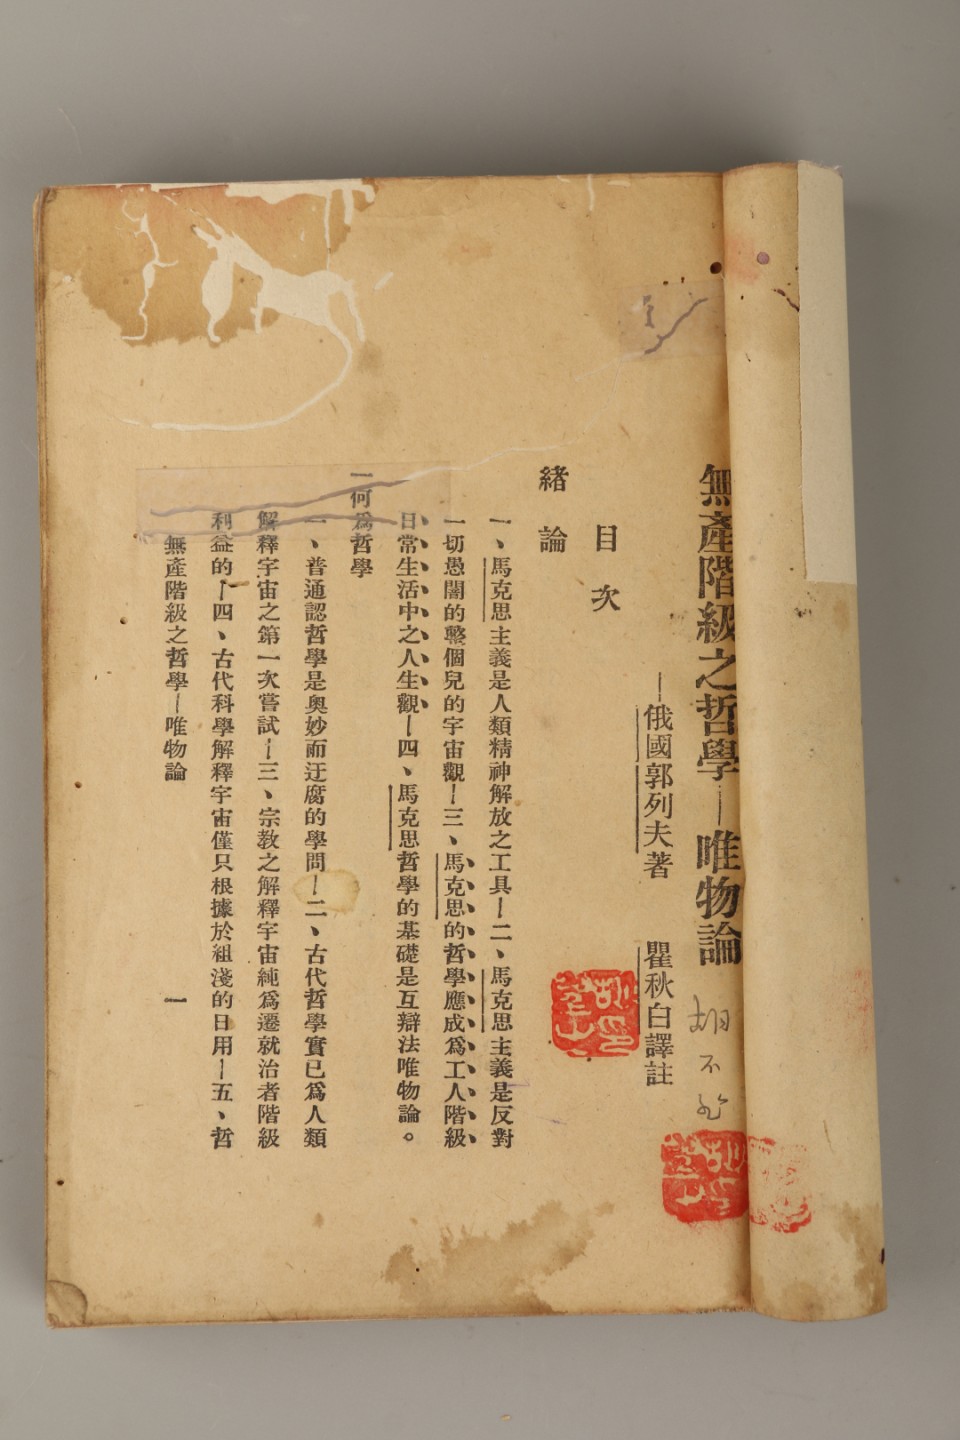 無產階級之哲學—唯物論
胡不
—俄國郭列夫著　瞿秋白譯註
目次
緒論
一、馬克思主義是人類精神解放之工具—二、馬克思主義是反對
一切愚闇的整個兒的宇宙觀—三、馬克思的哲學應成爲工人階級
日常生活中之人生觀—四、馬克思哲學的基礎是互辯法唯物論。
一何爲哲學
一、普通認哲學是奧妙而迂腐的學問—二、古代哲學實已爲人類
解釋宇宙之第一次嘗試—三、宗教之解釋宇宙純爲遷就治者階級
利益的—四、古代科學解釋宇宙僅只根據於粗淺的日用—五、哲
無產階級之哲學—唯物論
一